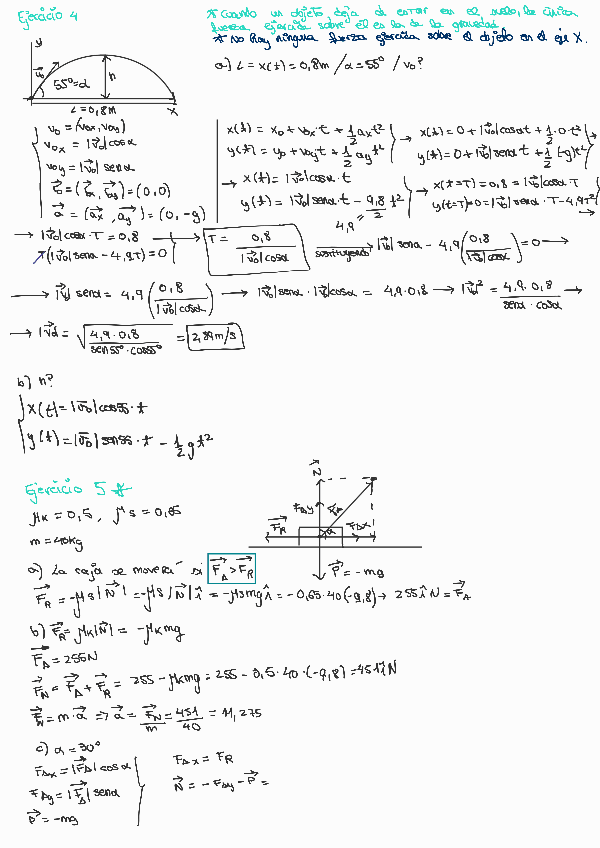 Ejercicio 4
* Cuando un objeto, deja de estar en el suelo, la única
fuerza ejercida sobre él es la de la gravedad.
* No hay ninguna fuerza ejercida sobre el objeto en el eje X.
y
v₀
55°=α
h
L=0,8m
x
a) L = x(t) = 0,8m / α=55° / v₀?
v₀ = (v₀x, v₀y)
v₀x = |v₀|cosα
v₀y = |v₀| senα
r₀ = (r₀x, r₀y) = (0,0)
a = (ax, ay) = (0, -g)
x(t) = x₀ + v₀x·t + 1/2 axt²
y(t) = y₀ + v₀yt + 1/2 ayt²
→ x(t) = 0 + |v₀|cosαt + 1/2·0·t² →
y(t) = 0 + |v₀|senαt + 1/2 (-g)t²
→ x(t) = |v₀|cosα·t
y(t) = |v₀|senα t - 9,8/2 t²
4,9
→ x(t=T) = 0,8 = |v₀|cosα T
y(t=T)=0 = |v₀|senα·T - 4,9T² →
→ |v₀|cosα·T = 0,8
T(|v₀|senα - 4,9T) = 0
T = 0,8 / |v₀|cosα
sustituyendo → |v₀| senα - 4,9 (0,8 / |v₀|cosα) = 0 →
→ |v₀| senα = 4,9 (0,8 / |v₀|cosα) → |v₀|senα · |v₀|cosα = 4,9·0,8 → |v₀|² = 4,9·0,8 / senα·cosα →
→ |v₀| = √(4,9·0,8 / sen55°·cos55°) = 2,89m/s
b) h?
x(t) = |v₀|cos55·t
y(t) = |v₀|sen55·t - 1/2 gt²
Ejercicio 5 *
μK = 0,5, μs = 0,65
m = 40kg
N
FAy
FA
FR
α
FAx
P = -mg
a) La caja se moverá si FA > FR
FR = -μs|N| = -μs|N|î = -μsmgî = -0,65·40(-9,8) → 255î N = FA
b) FR = μK|N| = -μKmg
FA = 255N
FN = FA + FR = 255 - μKmg = 255 - 0,5·40·(-9,8) = 451îN
FN = m·a ⇒ a = FN/m = 451/40 = 11,275
c) α = 30°
FAx = |FA| cosα
FAy = |FA| senα
P = -mg
FAx = FR
N = -FAy - P =